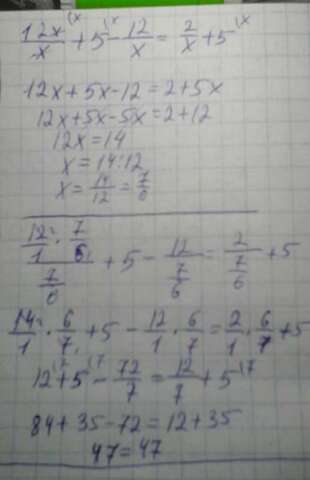 12x/x + 5 - 12/x = 2/x + 5
12x + 5x - 12 = 2 + 5x
12x + 5x - 5x = 2 + 12
12x = 14
x = 14:12
x = 14/12 = 7/6
12/1 · 7/6 / 7/6 + 5 - 12 / 7/6 = 2 / 7/6 + 5
14/1 · 6/7 + 5 - 12/1 · 6/7 = 2/1 · 6/7 + 5
12 + 5 - 72/7 = 12/7 + 5
84 + 35 - 72 = 12 + 35
47 = 47